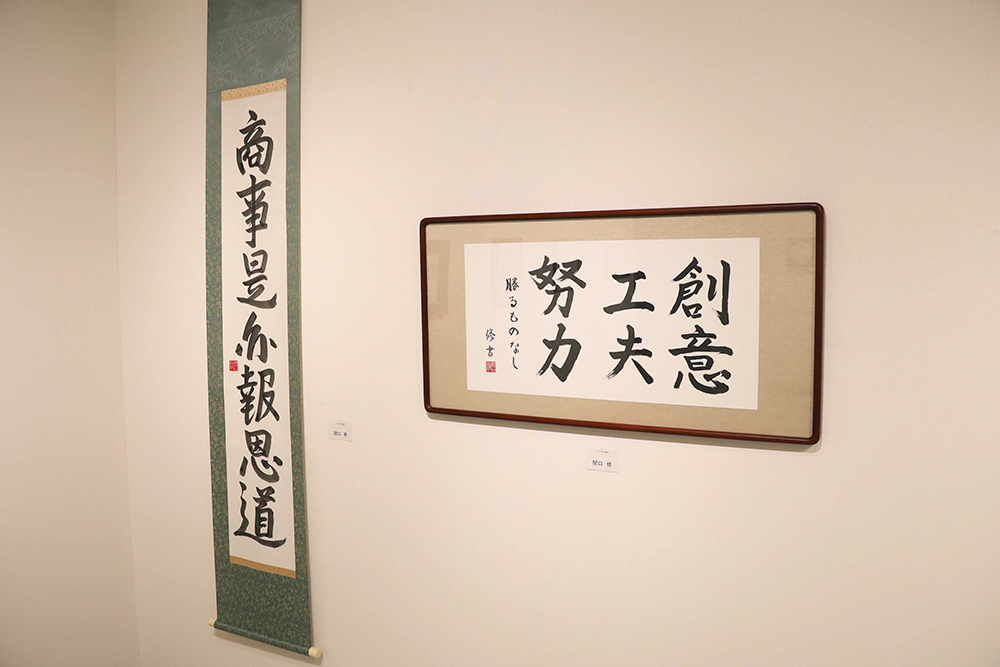 商事是亦報恩道
創意
工夫
努力
勝るものなし
修書
関口 修
関口 修